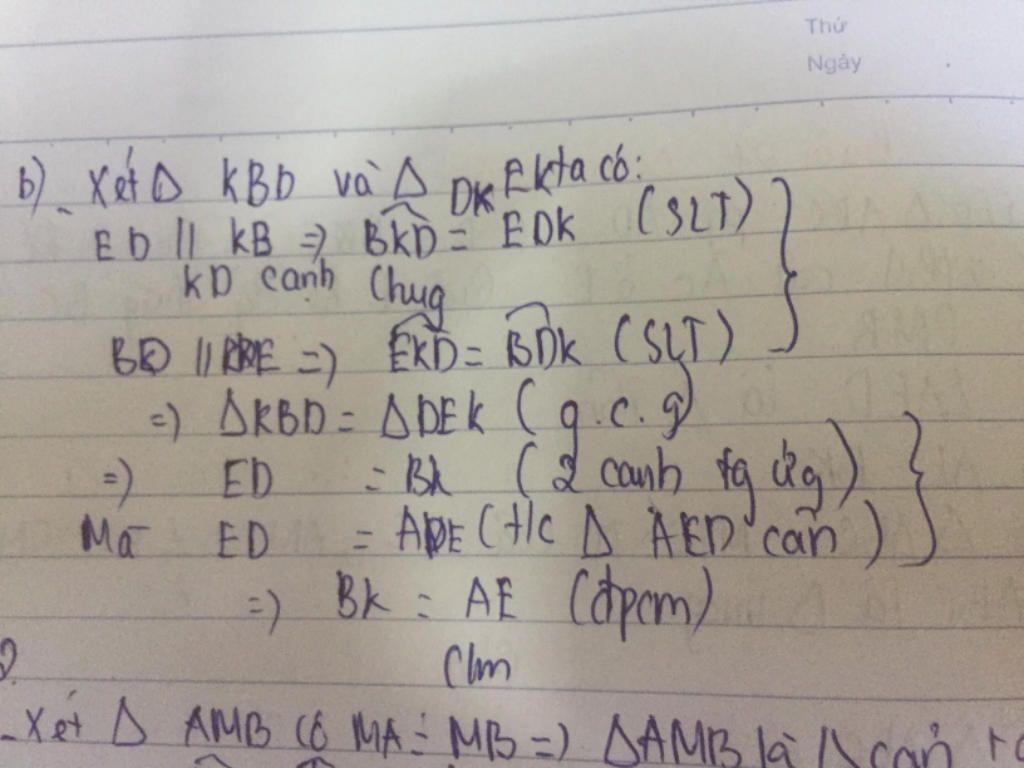 Thứ
Ngày
b) - Xét Δ KBD và Δ DKE ta có:
ED // KB => BKD = EDK (SLT)
KD cạnh chug
BD // KE => EKD = BDK (SLT)
=> ΔKBD = ΔDEK (g.c.g)
=> ED = BK (2 cạnh tg ứg)
Mà ED = AE (t/c Δ AED cân)
=> BK = AE (đpcm)
Clm
- Xét Δ AMB có MA = MB => ΔAMB là Δ cân